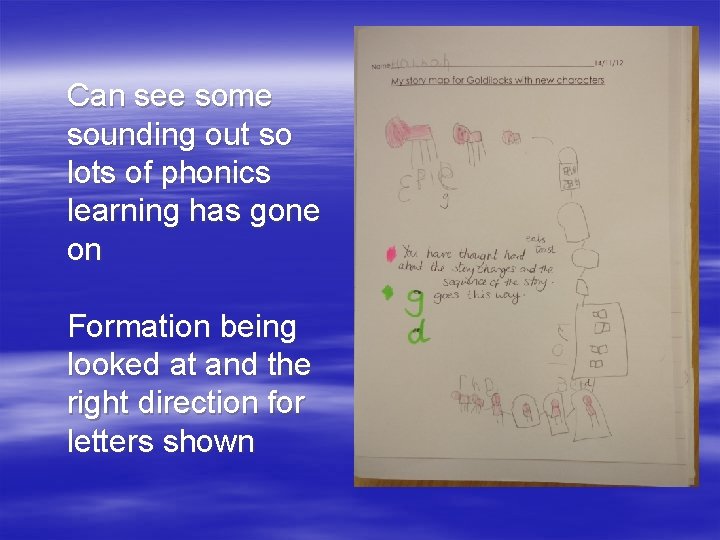 Can see some
sounding out so
lots of phonics
learning has gone
on
Formation being
looked at and the
right direction for
letters shown
Name Hannah 14/11/12
My story map for Goldilocks with new characters
g
You have thought hard
about the story changes and the
sequence of the story.
goes this way.
g
d